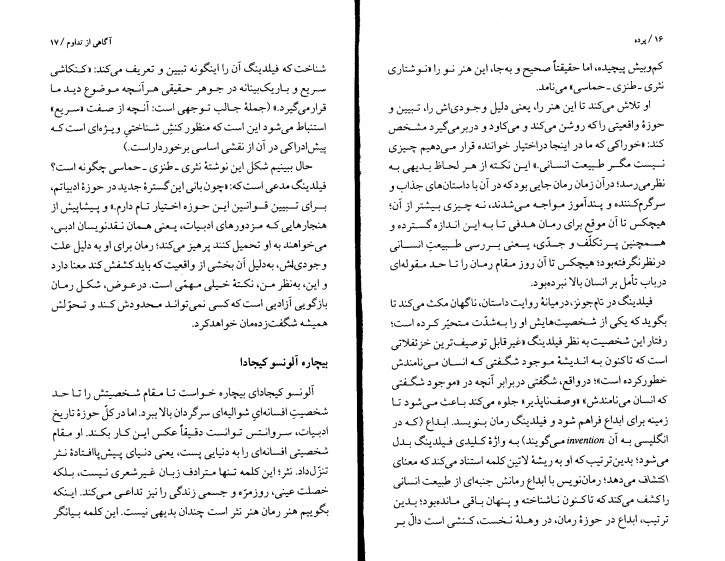 ۱۶ / پرده
کم‌وبیش پیچیده، اما حقیقتاً صحیح و به‌جا، این هنر نو را «نوشتاری
نثری ـ طنزی ـ حماسی» می‌نامد.
او تلاش می‌کند تا این هنر را، یعنی دلیل وجودی‌اش را، تبیین و
حوزهٔ واقعیتی را که روشن می‌کند و می‌کاود و دربرمی‌گیرد مشخص
کند: «خوراکی که ما در اینجا دراختیار خواننده قرار می‌دهیم چیزی
نیست مگر طبیعت انسانی.» این نکته از هر لحاظ بدیهی به
نظرمی‌رسد؛ درآن زمان رمان جایی بودکه در آن با داستان‌های جذاب و
سرگرم‌کننده و پندآموز مواجه می‌شدند، نه چیزی بیشتر از آن؛
هیچکس تا آن موقع برای رمان هدفی تا به این اندازه گسترده و
همچنین پرتکلّف و جدّی، یعنی بررسی طبیعتِ انسانی
درنظرنگرفته‌بود؛ هیچکس تا آن روز مقام رمان را تا حد مقوله‌ای
درباب تأمل بر انسان بالا نبرده‌بود.
فیلدینگ در تام‌جونز، درمیانهٔ روایت داستان، ناگهان مکث می‌کند تا
بگوید که یکی از شخصیت‌هایش او را به‌شدّت متحیّر کرده است؛
رفتار این شخصیت به نظر فیلدینگ «غیرقابل توصیف‌ترین خزعفلاتی
است که تاکنون به اندیشهٔ موجود شگفتی که انسان می‌نامندش
خطورکرده است»؛ درواقع، شگفتی دربرابر آنچه در «موجود شگفتی
که انسان می‌نامندش» «وصف‌ناپذیر» جلوه می‌کند باعث می‌شود تا
زمینه برای ابداع فراهم شود و فیلدینگ رمان بنویسد. ابداع (که در
انگلیسی به آن invention می‌گویند) به واژهٔ کلیدی فیلدینگ بدل
می‌شود؛ بدین‌ترتیب که او به ریشهٔ لاتین کلمه استناد می‌کند که معنای
اکتشاف می‌دهد؛ رمان‌نویس با ابداع رمانش جنبه‌ای از طبیعت انسانی
راکشف می‌کند که تاکنون ناشناخته و پنهان باقی مانده‌بود؛ بدین
ترتیب، ابداع در حوزهٔ رمان، در وهلهٔ نخست، کنشی است دالّ بر
آگاهی از تداوم / ۱۷
شناخت که فیلدینگ آن را اینگونه تبیین و تعریف می‌کند: «کنکاشی
سریع و باریک‌بینانه در جوهر حقیقی هرآنچه موضوع دید ما
قرارمی‌گیرد.» (جملهٔ جالب توجهی است: آنچه از صفت «سریع»
استنباط می‌شود این است که منظور کنشِ شناختیِ ویژه‌ای است که
پیش‌ادراکی در آن از نقشی اساسی برخورداراست.)
حال ببینیم شکل این نوشتهٔ نثری ـ طنزی ـ حماسی چگونه است؟
فیلدینگ مدعی است که: «چون بانی این گسترهٔ جدید در حوزهٔ ادبیاتم،
برای تبیین قوانین این حوزه اختیار تام دارم.» و پیشاپیش از
هنجارهایی که مزدورهای ادبیات، یعنی همان نقدنویسان ادبی،
می‌خواهند به او تحمیل کنند پرهیز می‌کند؛ رمان برای او به دلیل علت
وجودی‌اش، به‌دلیل آن بخشی از واقعیت که باید کشفش کند معنا دارد
و این، به‌نظر من، نکتهٔ خیلی مهمّی است. درعوض، شکل رمان
بازگویی آزادیی است که کسی نمی‌تواند محدودش کند و تحوّلش
همیشه شگفت‌زده‌مان خواهدکرد.
بیچاره آلونسو کیجادا!
آلونسو کیجادای بیچاره خواست تا مقام شخصیتش را تا حد
شخصیتِ افسانه‌ایِ شوالیه‌ای سرگردان بالا ببرد. اما درکلّ حوزهٔ تاریخ
ادبیات، سروانتس توانست دقیقاً عکس این کار بکند. او مقام
شخصیتی افسانه‌ای را به دنیایی پست، یعنی دنیای پیش‌پاافتادهٔ نثر
تنزّل‌داد. نثر؛ این کلمه تنها مترادف زبان غیرشعری نیست، بلکه
خصلت عینی، روزمرّه و جسمیِ زندگی را نیز تداعی می‌کند. اینکه
بگوییم هنر رمان هنر نثر است چندان بدیهی نیست. این کلمه بیانگر